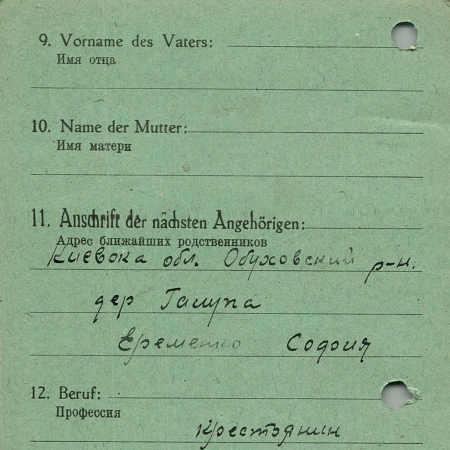 9. Vorname des Vaters:
Имя отца
10. Name der Mutter:
Имя матери
11. Anschrift der nächsten Angehörigen:
Адрес ближайших родственников
Киевска обл. Обуховский р-н.
дер Гасупа
Еременко София
12. Beruf:
Профессия
Крестянин